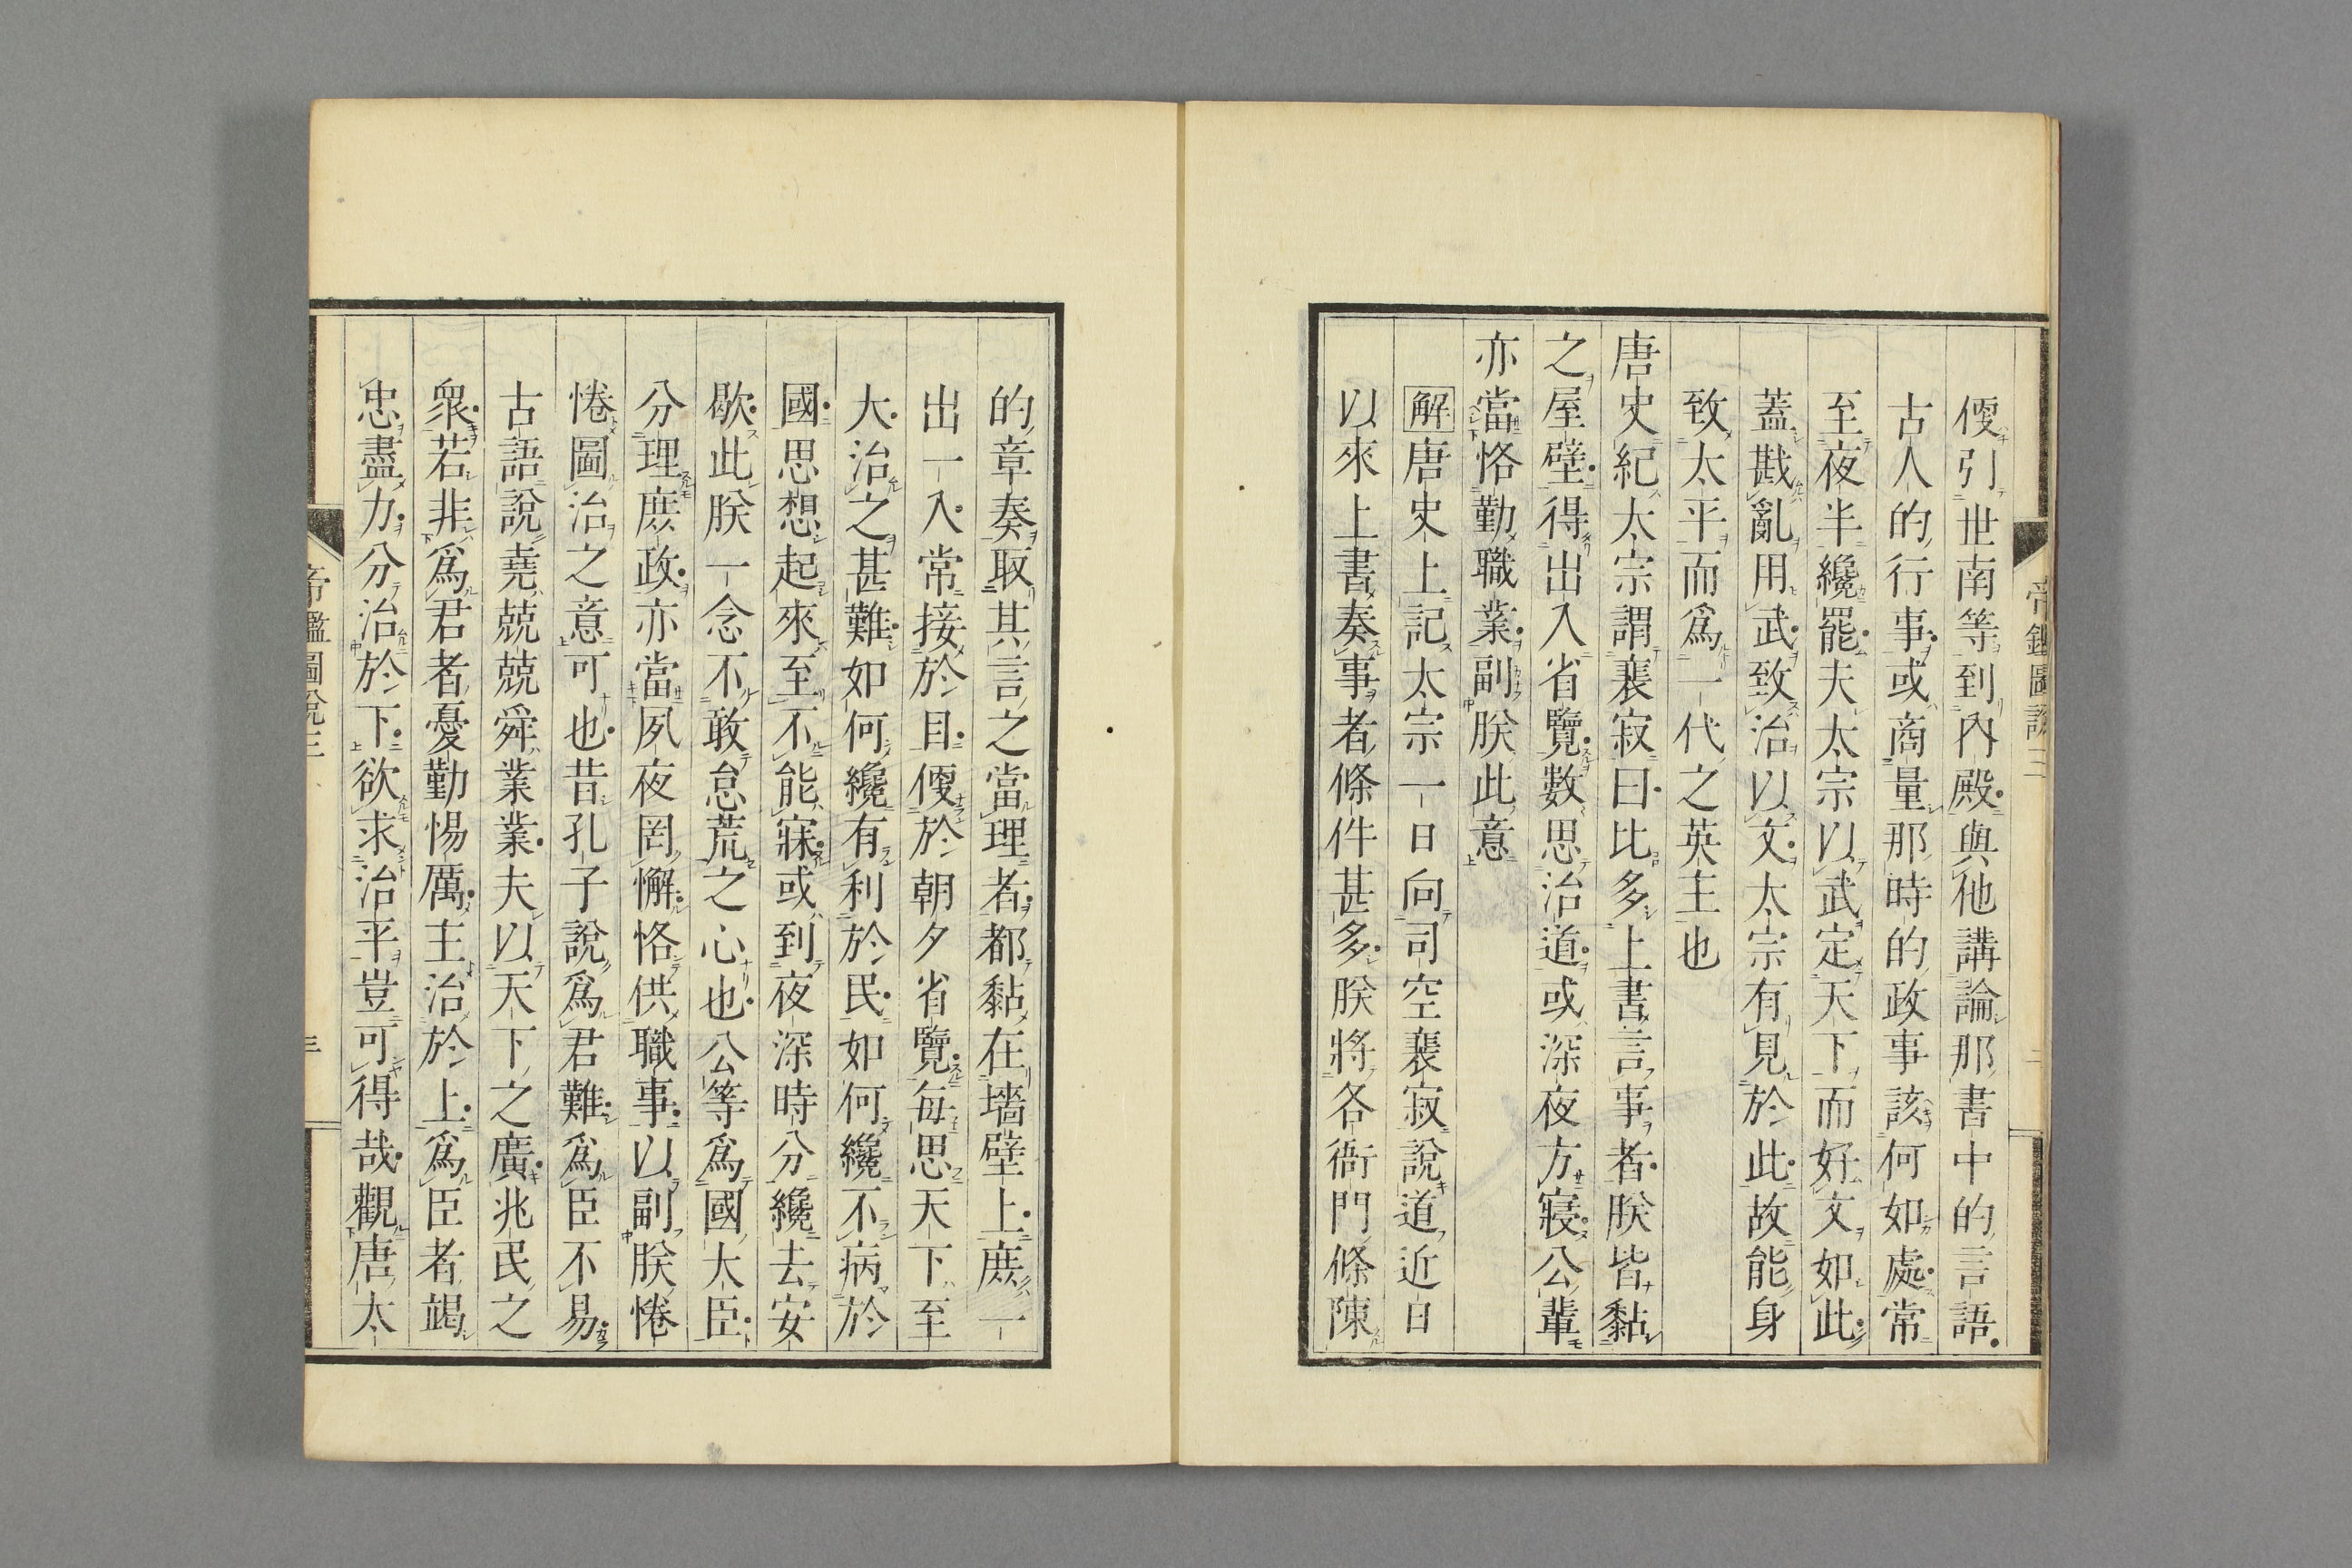 帝鑑圖說三
二
便引世南等到內殿與他講論那書中的言語
古人的行事或商量那時的政事該何如處常
至夜半纔罷夫太宗以武定天下而好文如此
蓋戡亂用武致治以文太宗有見於此故能身
致太平而爲一代之英主也
唐史紀太宗謂裴寂曰比多上書言事者朕皆黏
之屋壁得出入省覽數思治道或深夜方寢公輩
亦當恪勤職業副朕此意
解唐史上記太宗一日向司空裴寂說道近日
以來上書奏事者條件甚多朕將各衙門條陳
的章奏取其言之當理者都黏在墻壁上庶一
出一入常接於目便於朝夕省覽每思天下至
大治之甚難如何纔有利於民如何纔不病於
國思想起來至不能寐或到夜深時分纔去安
歇此朕一念不敢怠荒之心也公等爲國大臣
分理庶政亦當夙夜罔懈恪供職事以副朕惓
惓圖治之意可也昔孔子說爲君難爲臣不易
古語說堯兢兢舜業業夫以天下之廣兆民之
衆若非爲君者憂勤惕厲主治於上爲臣者竭
忠盡力分治於下欲求治平豈可得哉觀唐太
帝鑑圖說三
三